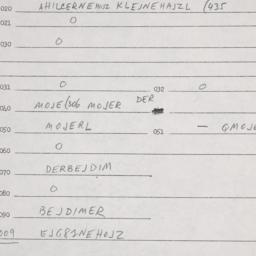 020 AHILZERNEHOJZ KLEJNEHAJZL (435
021 O
030 O
031 O 032 O
040 MOJE(306 MOJER DER
050 MOJERL 051 — QMOJE
060 O
070 DERBEJDIM
080 O
090 BEJDIMER
009 EJG81NEHOJZ